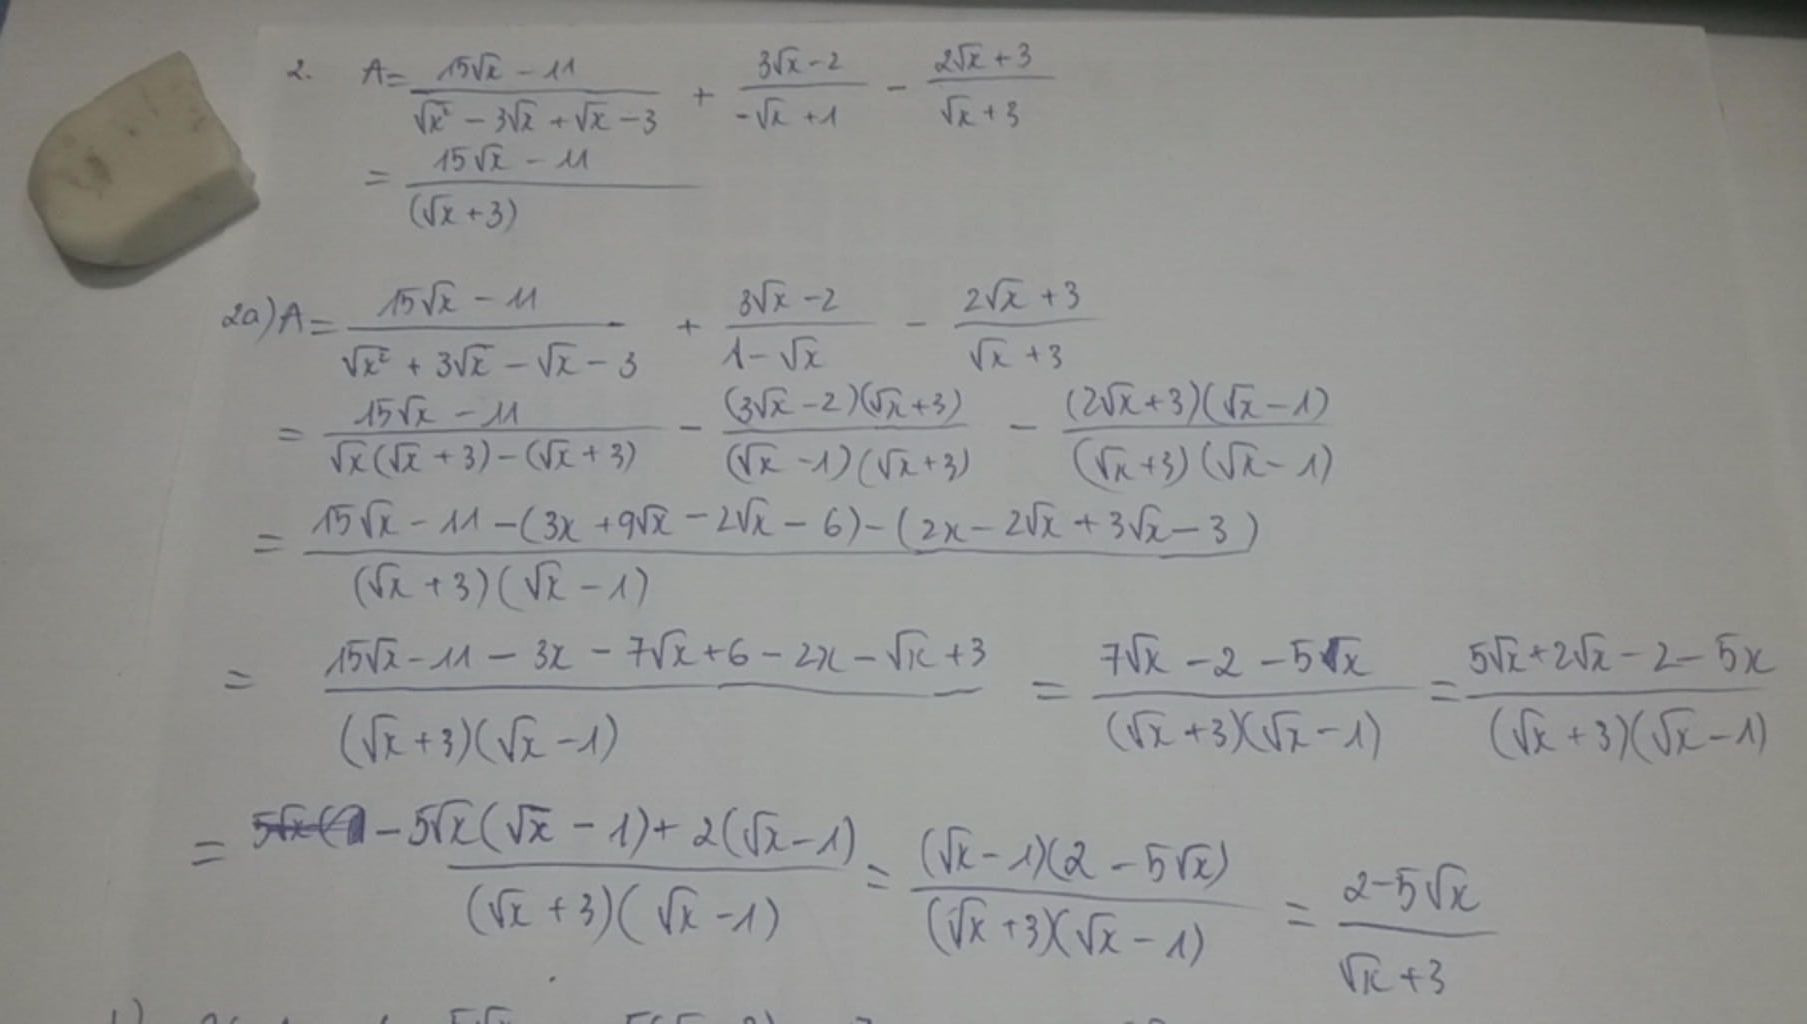 2. A = (15√x - 11)/(√x² - 3√x + √x - 3) + (3√x - 2)/(-√x + 1) - (2√x + 3)/(√x + 3)
= (15√x - 11)/((√x + 3))
2a) A = (15√x - 11)/(√x² + 3√x - √x - 3) + (3√x - 2)/(1 - √x) - (2√x + 3)/(√x + 3)
= (15√x - 11)/(√x(√x + 3) - (√x + 3)) - ((3√x - 2)(√x + 3))/((√x - 1)(√x + 3)) - ((2√x + 3)(√x - 1))/((√x + 3)(√x - 1))
= (15√x - 11 - (3x + 9√x - 2√x - 6) - (2x - 2√x + 3√x - 3))/((√x + 3)(√x - 1))
= (15√x - 11 - 3x - 7√x + 6 - 2x - √x + 3)/((√x + 3)(√x - 1)) = (7√x - 2 - 5x)/((√x + 3)(√x - 1)) = (5√x + 2√x - 2 - 5x)/((√x + 3)(√x - 1))
= (-5√x(√x - 1) + 2(√x - 1))/((√x + 3)(√x - 1)) = ((√x - 1)(2 - 5√x))/((√x + 3)(√x - 1)) = (2 - 5√x)/(√x + 3)